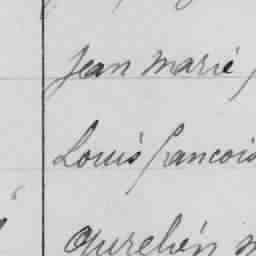 Jean Marie
Louis francois
Aurelien